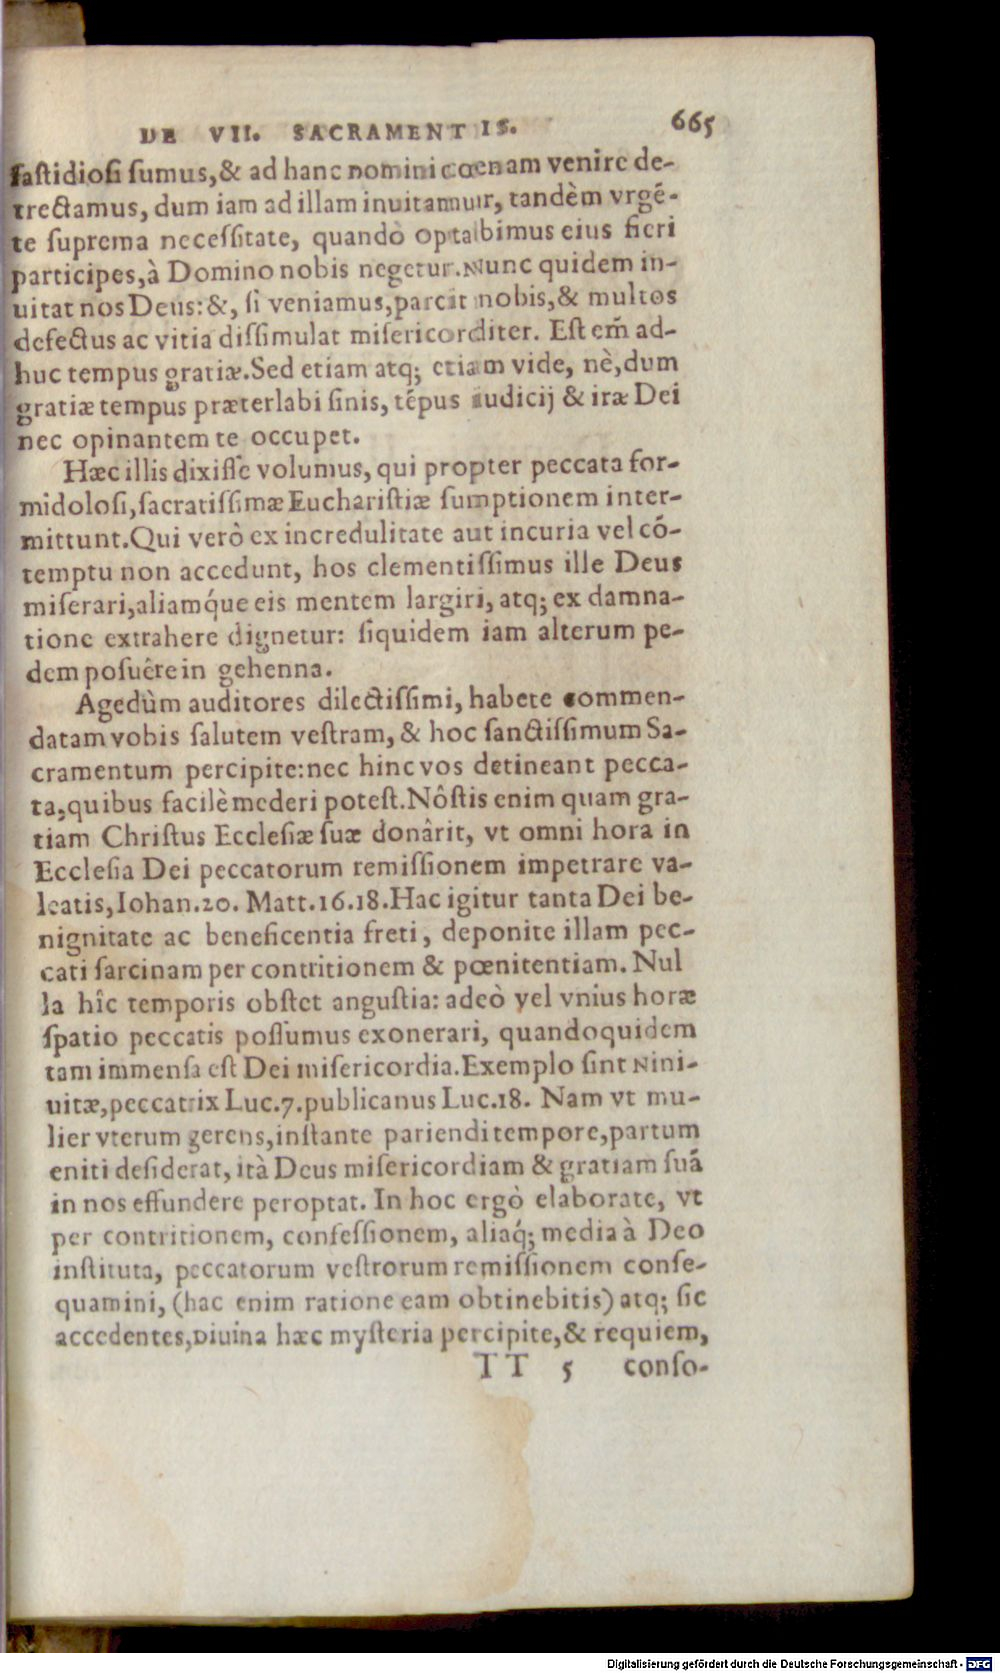 DE VII. SACRAMENTIS. 665
fastidiosi sumus,& ad hanc nomini cœnam venire de-
trectamus, dum iam ad illam inuitamur, tandèm vrgẽ-
te suprema necessitate, quandò optabimus eius fieri
participes,à Domino nobis negetur. Nunc quidem in-
uitat nos Deus:&, si veniamus,parcit nobis,& multos
defectus ac vitia dissimulat misericorditer. Est em̃ ad-
huc tempus gratiæ.Sed etiam atq; etiam vide, nè,dum
gratiæ tempus præterlabi sinis, tẽpus iudicij & iræ Dei
nec opinantem te occupet.
Hæc illis dixisse volumus, qui propter peccata for-
midolosi,sacratissimæ Eucharistiæ sumptionem inter-
mittunt.Qui verò ex incredulitate aut incuria vel cõ-
temptu non accedunt, hos clementissimus ille Deus
miserari,aliamq́ue eis mentem largiri, atq; ex damna-
tione extrahere dignetur: siquidem iam alterum pe-
dem posuêre in gehenna.
Agedùm auditores dilectissimi, habete commen-
datam vobis salutem vestram, & hoc sanctissimum Sa-
cramentum percipite:nec hinc vos detineant pecca-
ta,quibus facilè mederi potest.Nôstis enim quam gra-
tiam Christus Ecclesiæ suæ donârit, vt omni hora in
Ecclesia Dei peccatorum remissionem impetrare va-
leatis,Iohan.20. Matt.16.18.Hac igitur tanta Dei be-
nignitate ac beneficentia freti, deponite illam pec-
cati sarcinam per contritionem & pœnitentiam. Nul
la hîc temporis obstet angustia: adeò vel vnius horæ
spatio peccatis possumus exonerari, quandoquidem
tam immensa est Dei misericordia.Exemplo sint Nini-
uitæ,peccatrix Luc.7.publicanus Luc.18. Nam vt mu-
lier vterum gerens,instante pariendi tempore,partum
eniti desiderat, ità Deus misericordiam & gratiam suã
in nos effundere peroptat. In hoc ergò elaborate, vt
per contritionem, confessionem, aliaq́; media à Deo
instituta, peccatorum vestrorum remissionem conse-
quamini, (hac enim ratione eam obtinebitis) atq; sic
accedentes,Diuina hæc mysteria percipite,& requiem,
TT 5 conso-
Digitalisierung gefördert durch die Deutsche Forschungsgemeinschaft - DFG